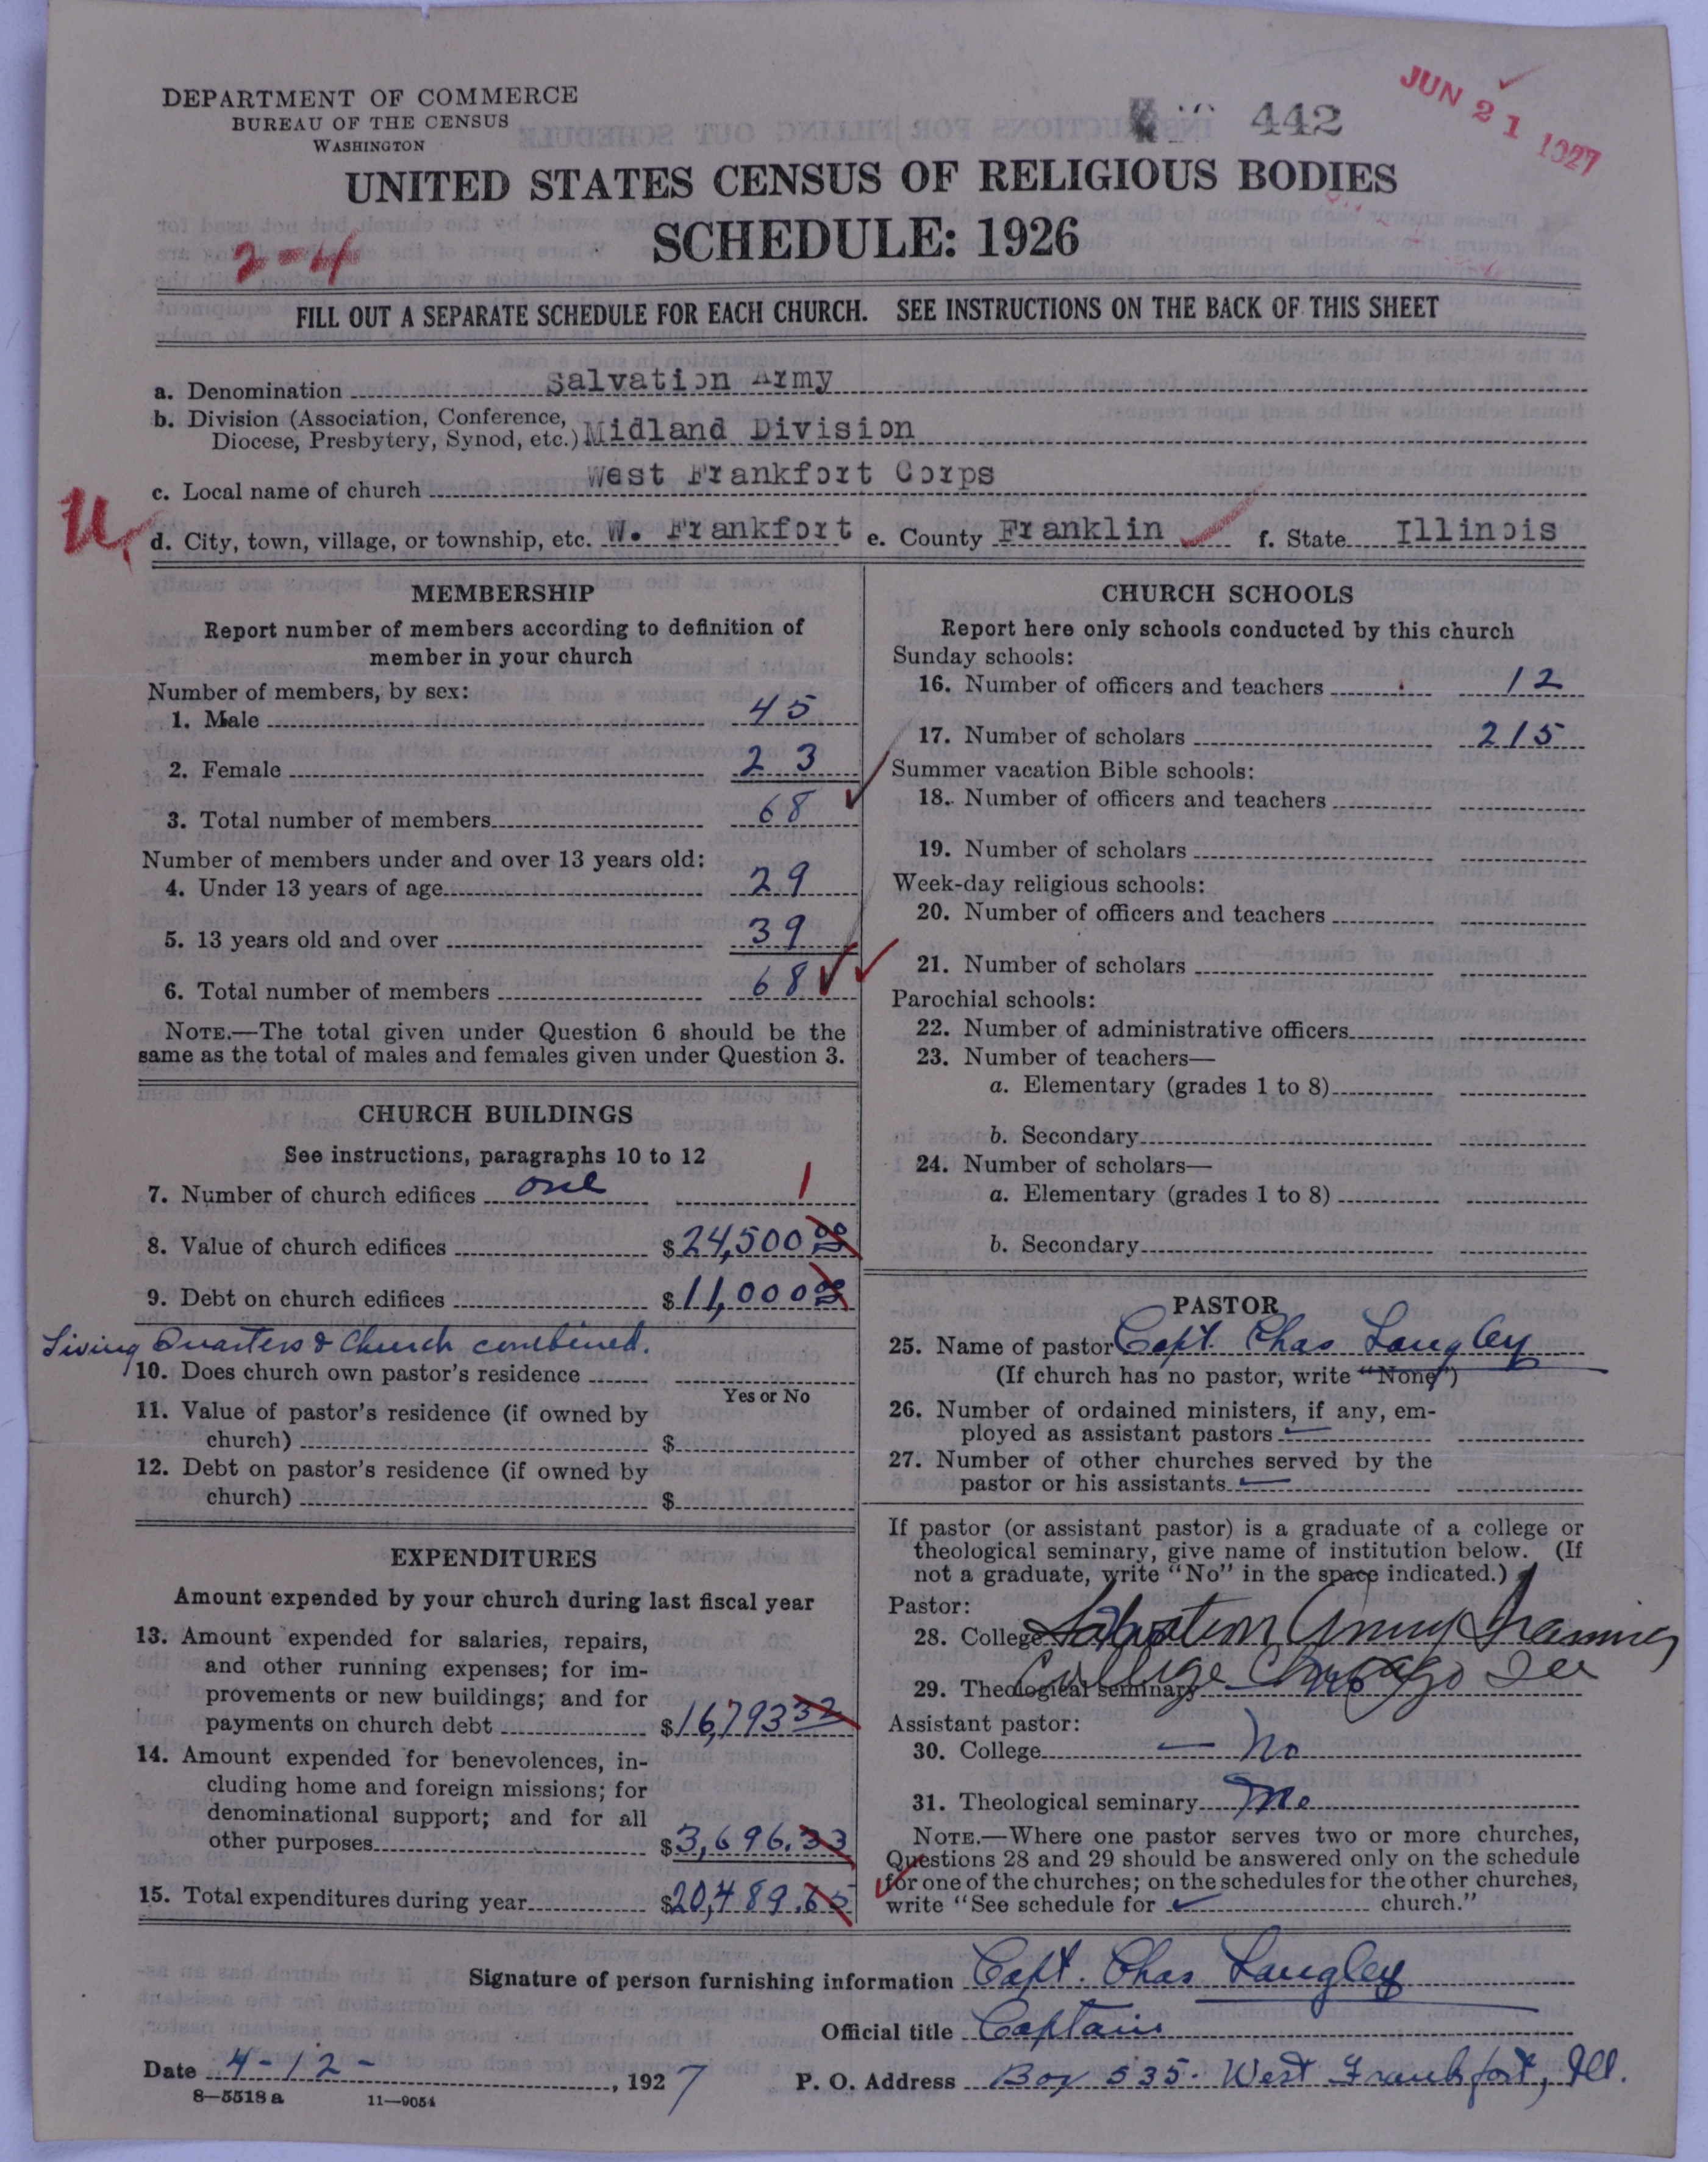 DEPARTMENT OF COMMERCE
BUREAU OF THE CENSUS
WASHINGTON
442
JUN 21 1927
UNITED STATES CENSUS OF RELIGIOUS BODIES
SCHEDULE: 1926
2-4
FILL OUT A SEPARATE SCHEDULE FOR EACH CHURCH. SEE INSTRUCTIONS ON THE BACK OF THIS SHEET
a. Denomination Salvation Army
b. Division (Association, Conference,
Diocese, Presbytery, Synod, etc.) Midland Division
c. Local name of church West Frankfort Corps
d. City, town, village, or township, etc. W. Frankfort e. County Franklin f. State Illinois
MEMBERSHIP
Report number of members according to definition of
member in your church
Number of members, by sex:
1. Male 45
2. Female 23
3. Total number of members 68
Number of members under and over 13 years old:
4. Under 13 years of age 29
5. 13 years old and over 39
6. Total number of members 68
NOTE.—The total given under Question 6 should be the
same as the total of males and females given under Question 3.
CHURCH BUILDINGS
See instructions, paragraphs 10 to 12
7. Number of church edifices one 1
8. Value of church edifices $24,500 00
9. Debt on church edifices $11,000 00
Living Quarters & Church combined.
10. Does church own pastor's residence
Yes or No
11. Value of pastor's residence (if owned by
church) $
12. Debt on pastor's residence (if owned by
church) $
EXPENDITURES
Amount expended by your church during last fiscal year
13. Amount expended for salaries, repairs,
and other running expenses; for im-
provements or new buildings; and for
payments on church debt $16,793 32
14. Amount expended for benevolences, in-
cluding home and foreign missions; for
denominational support; and for all
other purposes $3,696.33
15. Total expenditures during year $20,489.65
CHURCH SCHOOLS
Report here only schools conducted by this church
Sunday schools:
16. Number of officers and teachers 12
17. Number of scholars 215
Summer vacation Bible schools:
18. Number of officers and teachers
19. Number of scholars
Week-day religious schools:
20. Number of officers and teachers
21. Number of scholars
Parochial schools:
22. Number of administrative officers
23. Number of teachers—
a. Elementary (grades 1 to 8)
b. Secondary
24. Number of scholars—
a. Elementary (grades 1 to 8)
b. Secondary
PASTOR
25. Name of pastor Capt. Chas Langley
(If church has no pastor, write "None")
26. Number of ordained ministers, if any, em-
ployed as assistant pastors —
27. Number of other churches served by the
pastor or his assistants —
If pastor (or assistant pastor) is a graduate of a college or
theological seminary, give name of institution below. (If
not a graduate, write "No" in the space indicated.)
Pastor:
28. College Salvation Army Training
College Chicago Ill
29. Theological seminary — No
Assistant pastor:
30. College — No
31. Theological seminary No
NOTE.—Where one pastor serves two or more churches,
Questions 28 and 29 should be answered only on the schedule
for one of the churches; on the schedules for the other churches,
write "See schedule for church."
Signature of person furnishing information Capt. Chas Langley
Official title Captain
Date 4-12-, 1927 P. O. Address Box 535. West Frankfort, Ill.
8—5518 a 11—9054